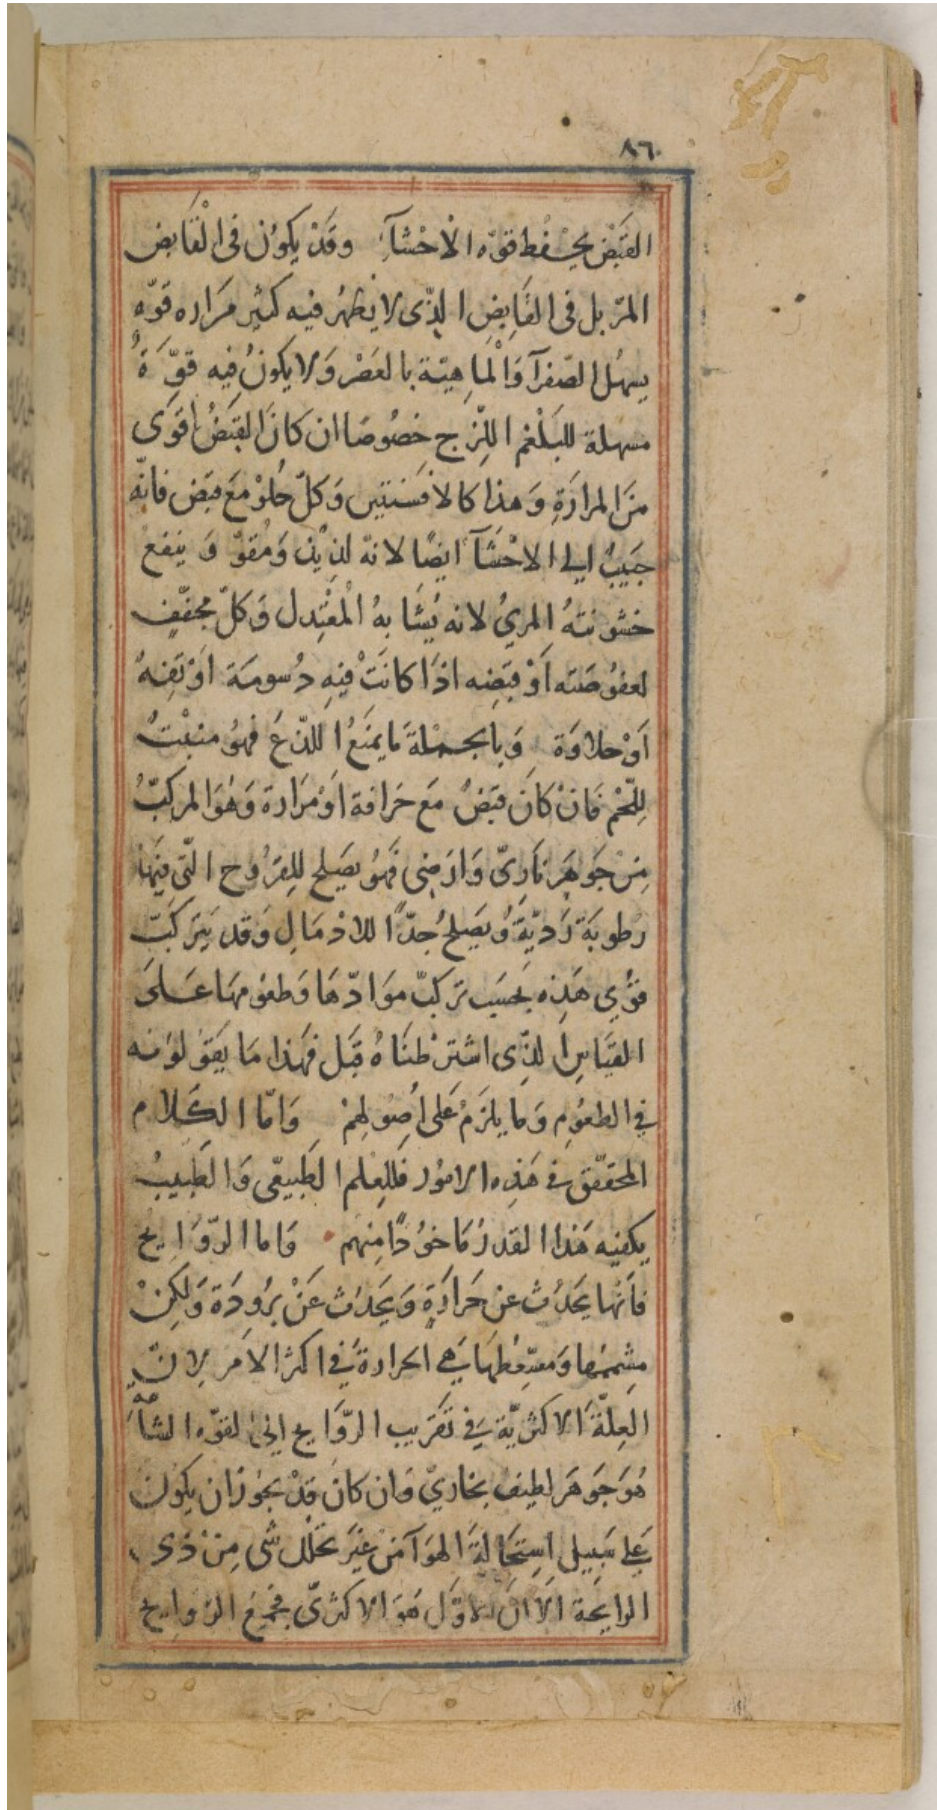 ٨٦
القَبْض يحْفظ قوّه الاحْشآءِ وقَدْ يكوُن فى الْقَابِض
المرّ بل فى القَابِضِ الذّى لا يَظهرُ فيه كثير مَراره قوّه
يسهّل الصّفرآ وَالْماهيّة بالعَصْر وَلا يكونُ فيه قوّةُ
مسهلة للبَلْغم اللّزج خصُوصًا ان كانَ القَبَضُ اقوَى
منَ المرارَةِ وَهذا كالافسَنتين وَكلّ حُلوْ مَع قبَض فانّه
حَبيبُ الي الاحْشَآ ايضًا لانهْ لذيْذ وَمُقوّ وَ ينفعْ
خشونتهُ المريُ لانه يُشَابهُ الْمعْتِدل وَكلّ مجفّفٍ
لعفوُصَته اَوْ قبَضِه اذَا كانَتْ فيهِ دُسومَة اوْ تَفِهُ
اَوْ حلاوَة وَبالجملة مَا يمنَعُ اللذّعَ فهوُ منبْتُ
لِلّحْم فَانْ كانَ قبَضُ مَع حَرافة اَوْ مَرَارة وَهْوَ المركبُّ
مِنْ جَوهَر نَارىّ وَارَضِى فهَوُ يصَلح للِقرُوح الّتى فيَها
رطوبَة رَديّةَ وُيصَلحُ جدًّا للادْمَالِ وَقد يَتركَبّ
قوُي هَذِه بَحسَب تَركبّ موَادّهَا وَطعوُمهَا عَلى
القيَاسِ الذّى اشترْطنَاهُ قبَل فهَذا مَا يَقوْلوُنه
فِي الطعوُمِ وَما يلزَمُ عَلى اُصِوُلهِمْ وَامّا الكَلام
المحققّق فى هَذِه الامُور فَللِعْلم الطَبيعَى وَالطَبيبُ
يكفيه هَذا القدرْ مَاخوُذًا مِنهم وَاما الرّوَايح
فاَنّها يَحدُث عنْ حَرارَةٍ وَيَحدُث عَنْ برُودَة وَلكِنْ
مشممُها وَمعسّعطها هَى الحرارةُ فِي اكثر الامَر لِانّ
العِلّةَ الاكثريّة فِي تَقرَيب الرّوَايح الىٰ لقوّه الشامّهَ
هُوَ جَوهَر لطيفُ بخارِيّ وَان كانَ قدْ يجوُز ان يكوُن
عَلي سَبيل اسِتحَالةَ الهوَآ منْ غيَر تحَلّل شى مِنْ ذى
الرايحَة الاّ انّ الاوّل هَو الاكثرىّ فجَميَعُ الرَوايح